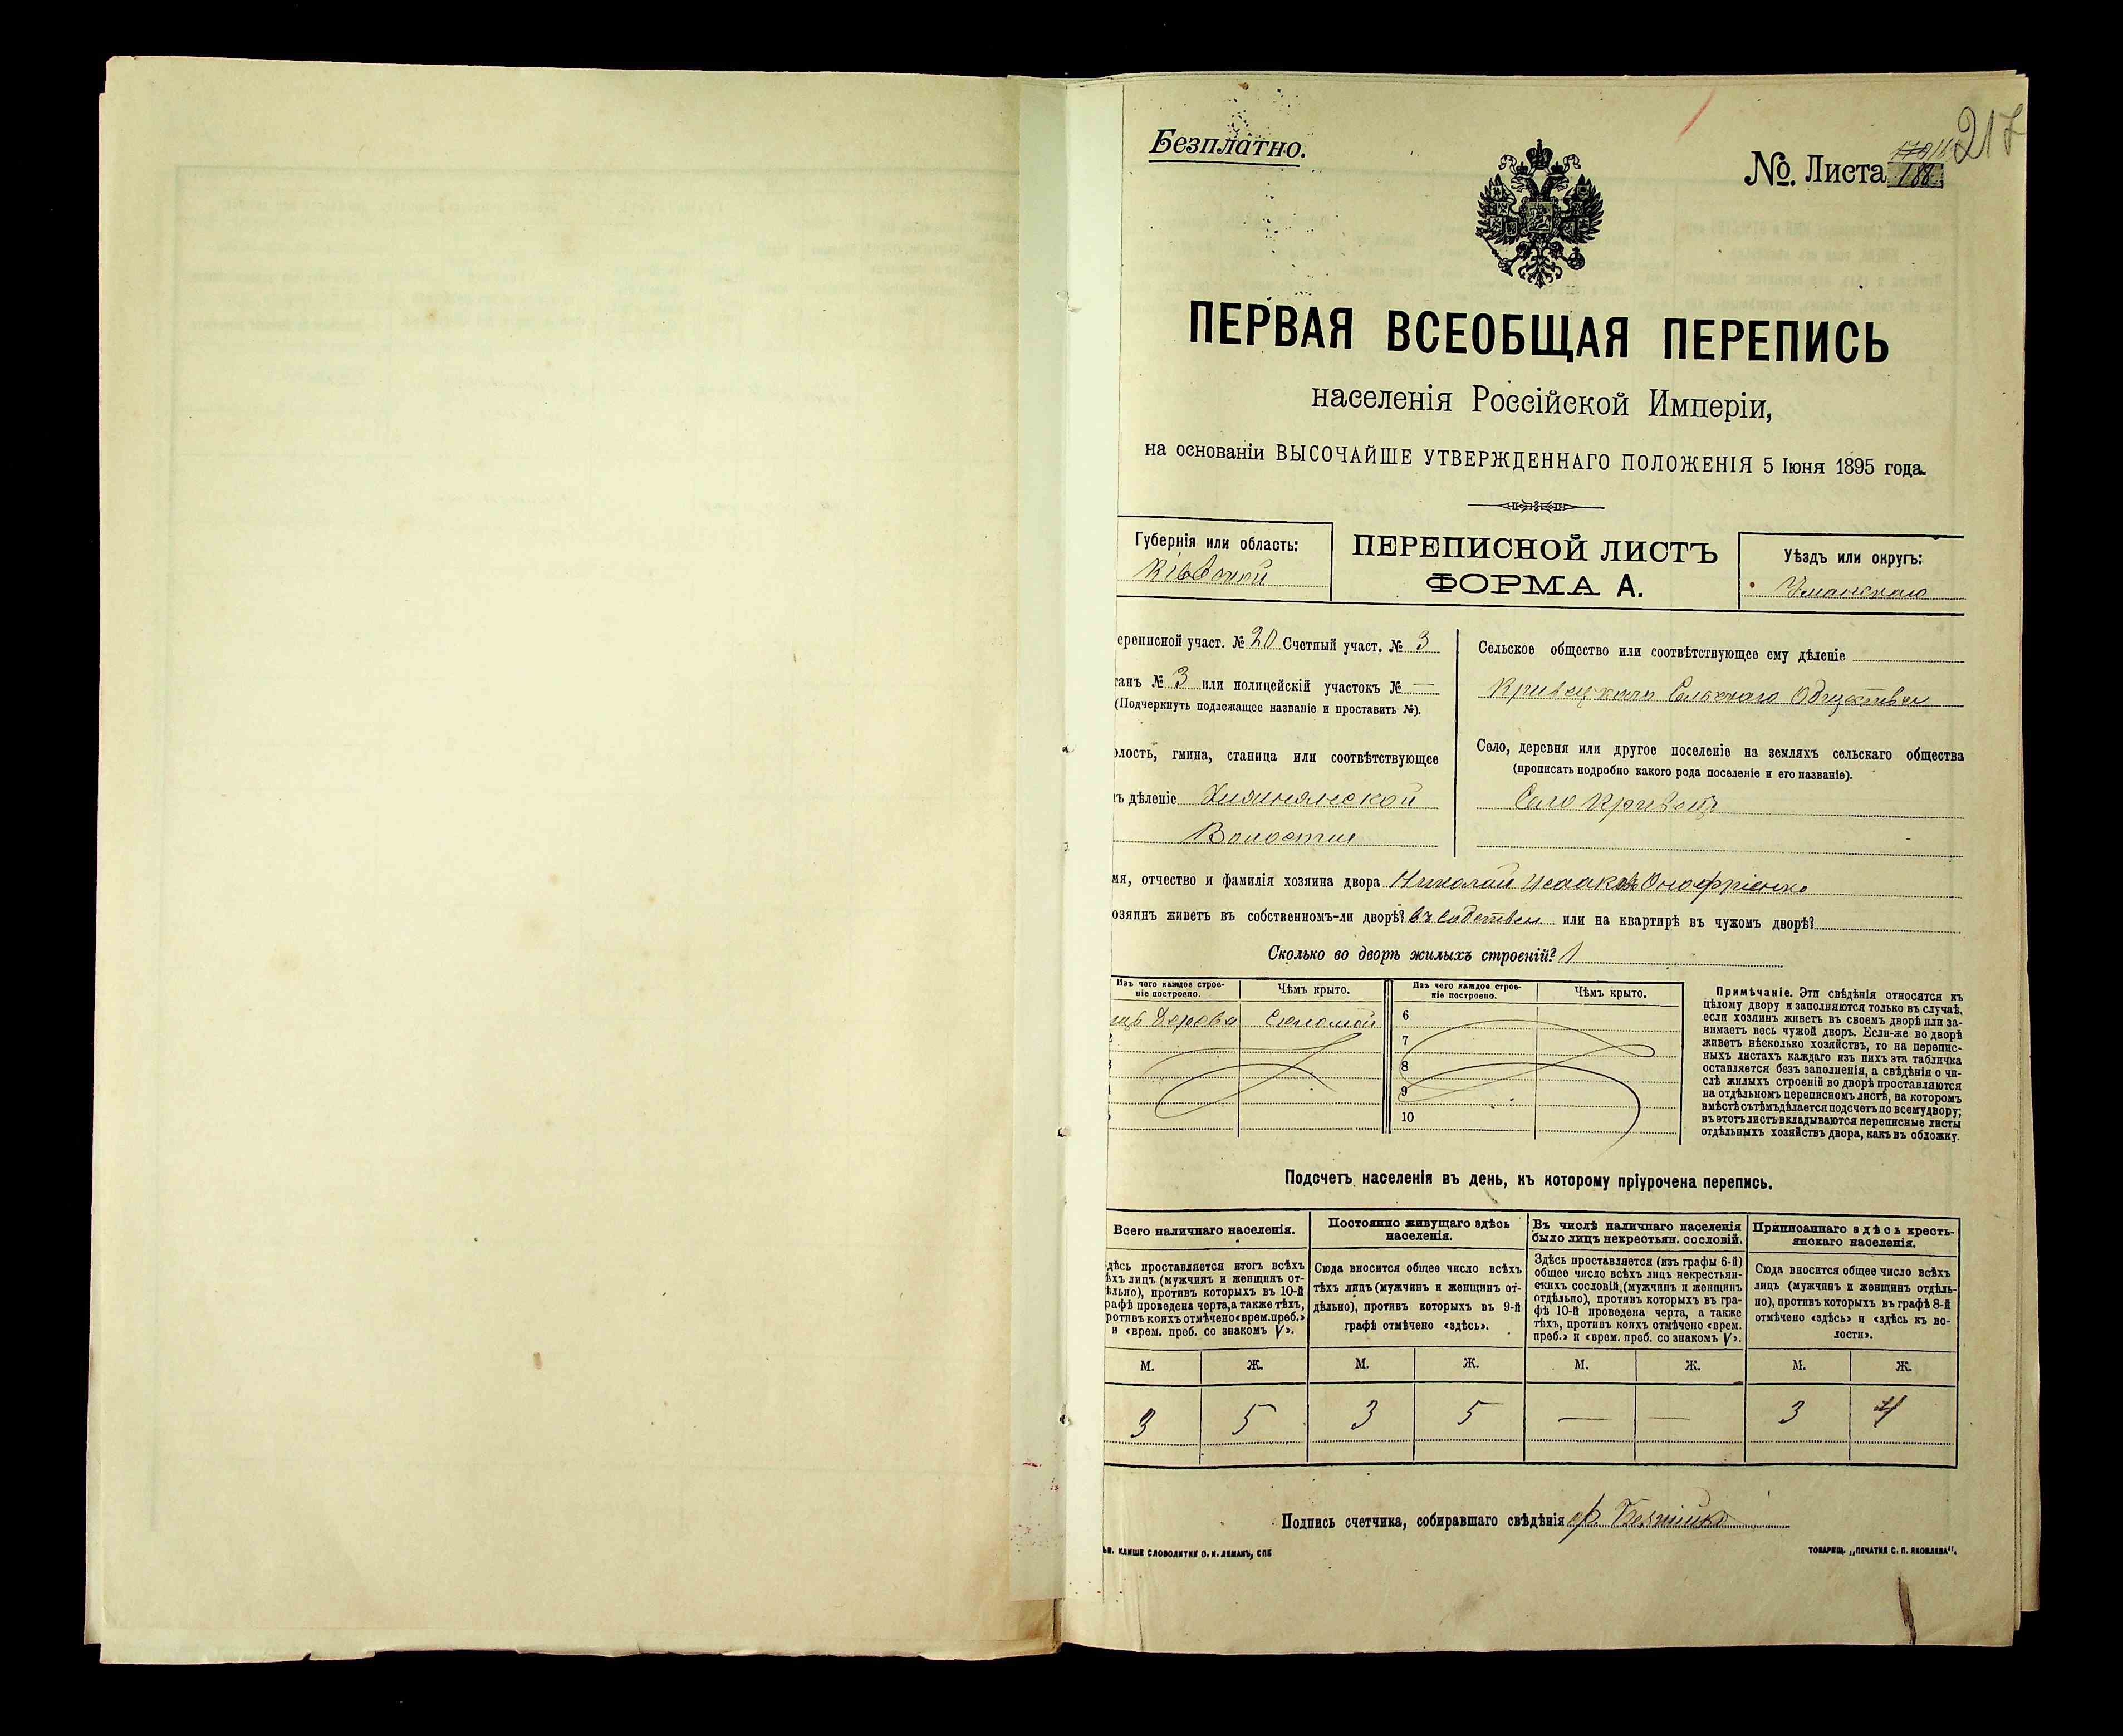 Безплатно.
217
№. Листа 188
ПЕРВАЯ ВСЕОБЩАЯ ПЕРЕПИСЬ
населенія Россійской Имперіи,
на основаніи ВЫСОЧАЙШЕ УТВЕРЖДЕННАГО ПОЛОЖЕНІЯ 5 Іюня 1895 года.
Губернія или область:
Кіевской
ПЕРЕПИСНОЙ ЛИСТЪ
ФОРМА А.
Уѣздъ или округъ:
Уманскаго
ереписной участ. № 20 Счетный участ. № 3
танъ № 3 или полицейскій участокъ № —
(Подчеркнуть подлежащее названіе и проставить №).
олость, гмина, станица или соотвѣтствующее
ъ дѣленіе
Волости
Сельское общество или соотвѣтствующее ему дѣленіе
Кривецкаго Сельскаго Общества
Село, деревня или другое поселеніе на земляхъ сельскаго общества
(прописать подробно какого рода поселеніе и его названіе).
Село Кривецъ
мя, отчество и фамилія хозяина двора Николай Исааковъ Онофріенко
озяинъ живетъ въ собственномъ-ли дворѣ? въ собствен или на квартирѣ въ чужомъ дворѣ?
Сколько во дворѣ жилыхъ строеній? 1
Изъ чего каждое строе-
ніе построено.
Чѣмъ крыто.
Изъ чего каждое строе-
ніе построено.
Чѣмъ крыто.
изъ Дерева Соломой
6
7
8
9
10
Примѣчаніе. Эти свѣдѣнія относятся къ
цѣлому двору и заполняются только въ случаѣ,
если хозяинъ живетъ въ своемъ дворѣ или за-
нимаетъ весь чужой дворъ. Если-же во дворѣ
живетъ нѣсколько хозяйствъ, то на перепис-
ныхъ листахъ каждаго изъ нихъ эта табличка
оставляется безъ заполненія, а свѣдѣнія о чи-
слѣ жилыхъ строеній во дворѣ проставляются
на отдѣльномъ переписномъ листѣ, на которомъ
вмѣстѣ съ тѣмъ дѣлается подсчетъ по всему двору;
въ этотъ листъ вкладываются переписные листы
отдѣльныхъ хозяйствъ двора, какъ въ обложку.
Подсчетъ населенія въ день, къ которому пріурочена перепись.
Всего наличнаго населенія.
дѣсь проставляется итогъ всѣхъ
ѣхъ лицъ (мужчинъ и женщинъ от-
ѣльно), противъ которыхъ въ 10-й
рафѣ проведена черта, а также тѣхъ,
ротивъ коихъ отмѣчено «врем. преб.»
и «врем. преб. со знакомъ V».
Постоянно живущаго здѣсь
населенія.
Сюда вносится общее число всѣхъ
тѣхъ лицъ (мужчинъ и женщинъ от-
дѣльно), противъ которыхъ въ 9-й
графѣ отмѣчено «здѣсь».
Въ числѣ наличнаго населенія
было лицъ некрестьян. сословій.
Здѣсь проставляется (изъ графы 6-й)
общее число всѣхъ лицъ некрестьян-
скихъ сословій (мужчинъ и женщинъ
отдѣльно), противъ которыхъ въ гра-
фѣ 10-й проведена черта, а также
тѣхъ, противъ коихъ отмѣчено «врем.
преб.» и «врем. преб. со знакомъ V».
Приписаннаго здѣсь кресть-
янскаго населенія.
Сюда вносится общее число всѣхъ
лицъ (мужчинъ и женщинъ отдѣль-
но), противъ которыхъ въ графѣ 8-й
отмѣчено «здѣсь» и «здѣсь къ во-
лости».
М. Ж. М. Ж. М. Ж. М. Ж.
3 5 3 5 — — 3 4
Подпись счетчика, собиравшаго свѣдѣнія
ЬВ. КЛИШЕ СЛОВОЛИТНИ О. И. ЛЕМАНЪ, СПБ
ТОВАРИЩ. „ПЕЧАТНЯ С. П. ЯКОВЛЕВА“.